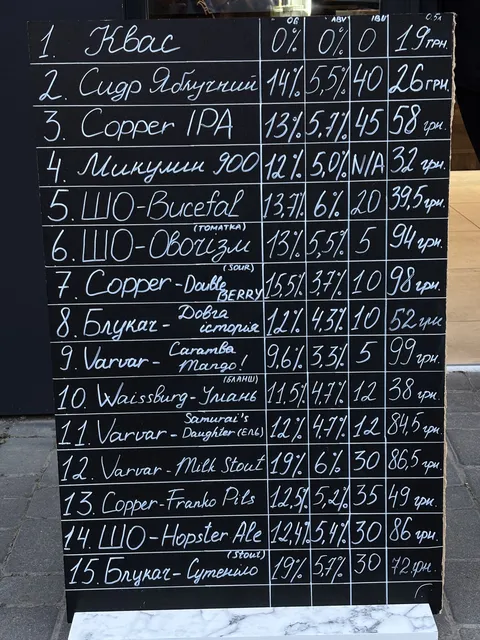 ОБ ABV IBU 0,5л
1. Квас 0% 0% 0 19 грн.
2. Сидр Яблучний 14% 5,5% 40 26 грн.
3. Copper IPA 13% 5.7% 45 58 грн.
4. Микулин 900 12% 5,0% N/A 32 грн.
5. ШО-Bucefal 13,7% 6% 20 39,5 грн.
(ТОМАТКА)
6. ШО-Овочізм 13% 5,5% 5 94 грн.
(SOUR)
7. Copper-Double BERRY 15,5% 3,7% 10 98 грн.
8. Блукач- Довга історія 12% 4,3% 10 52 грн
9. Varvar- Caramba Mango! 9,6% 3,3% 5 99 грн.
(БЛАНШ)
10. Waissburg-Умань 11,5% 4.7% 12 38 грн.
11. Varvar- Samurai's Daughter (ЕЛЬ) 12% 4,7% 12 84,5 грн.
12. Varvar-Milk Stout 19% 6% 30 86,5 грн.
13. Copper-Franko Pils 12,5% 5,2% 35 49 грн.
14. ШО-Hopster Ale 12,4% 5,4% 30 86 грн.
(Stout)
15. Блукач-Сутеніло 19% 5,7% 30 72 грн.